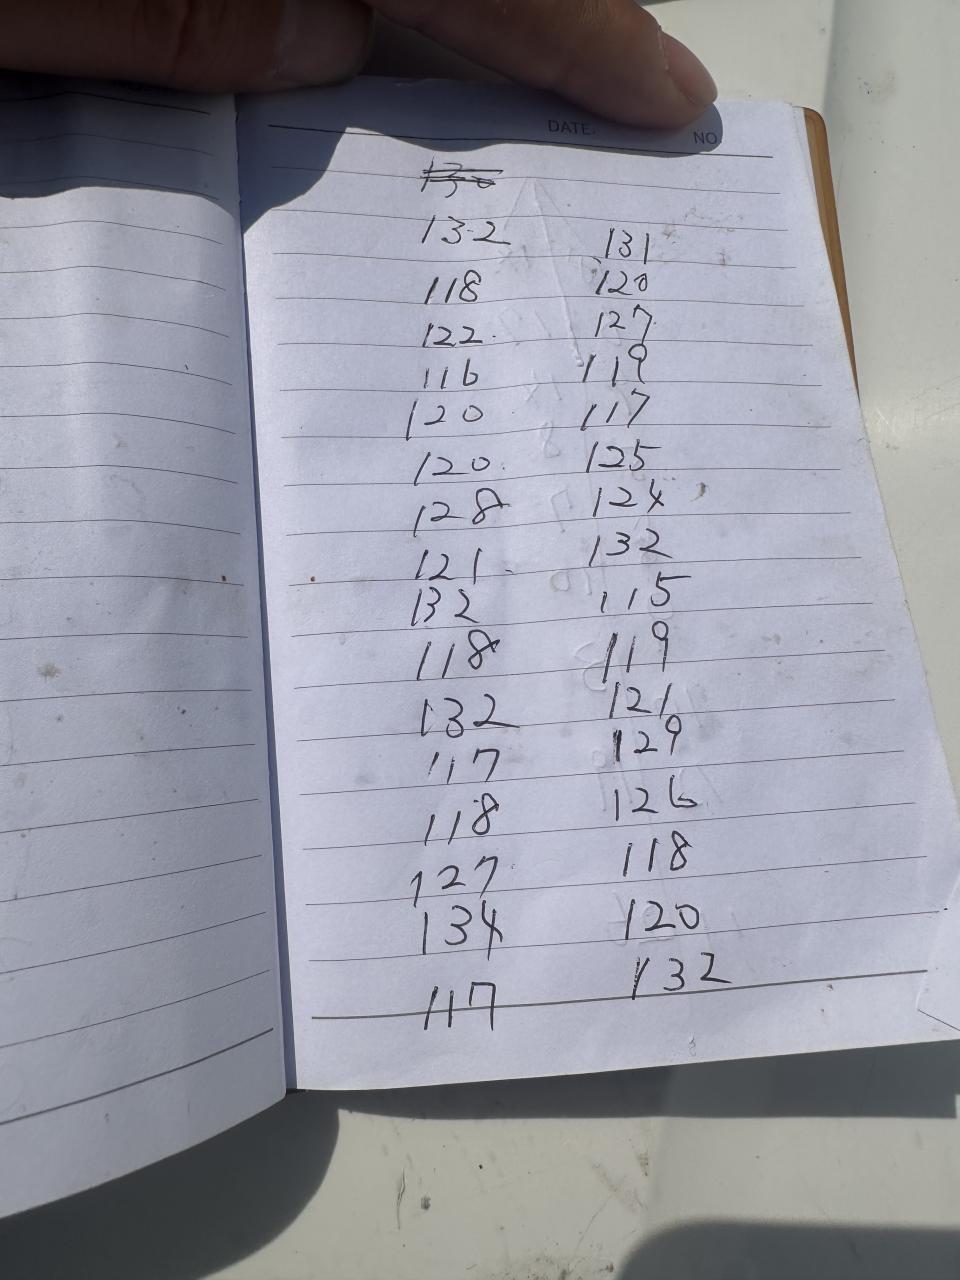 DATE. NO.
130
132 131
118 120
122 127
116 119
120 117
120 125
128 124
121 132
132 115
118 119
132 121
117 129
118 126
127 118
134 120
117 132